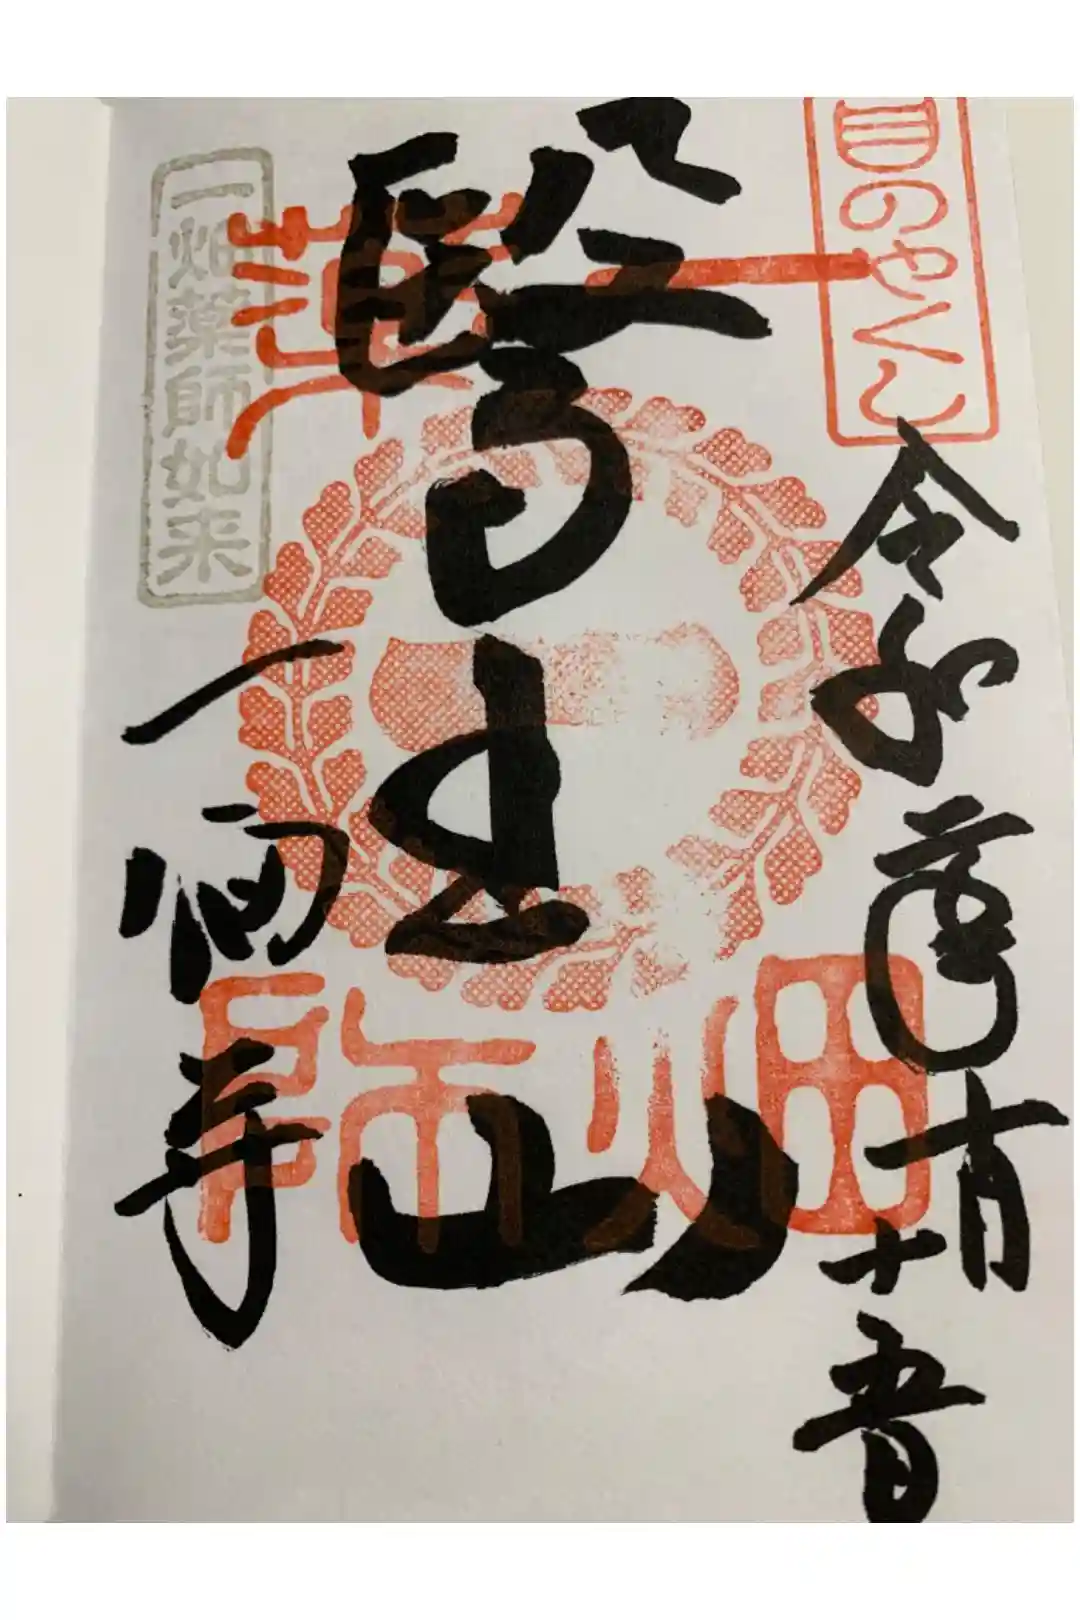 目のやくし
令和 年十月十五日
醫王山
一畑薬師
一畑寺
一畑薬師如来